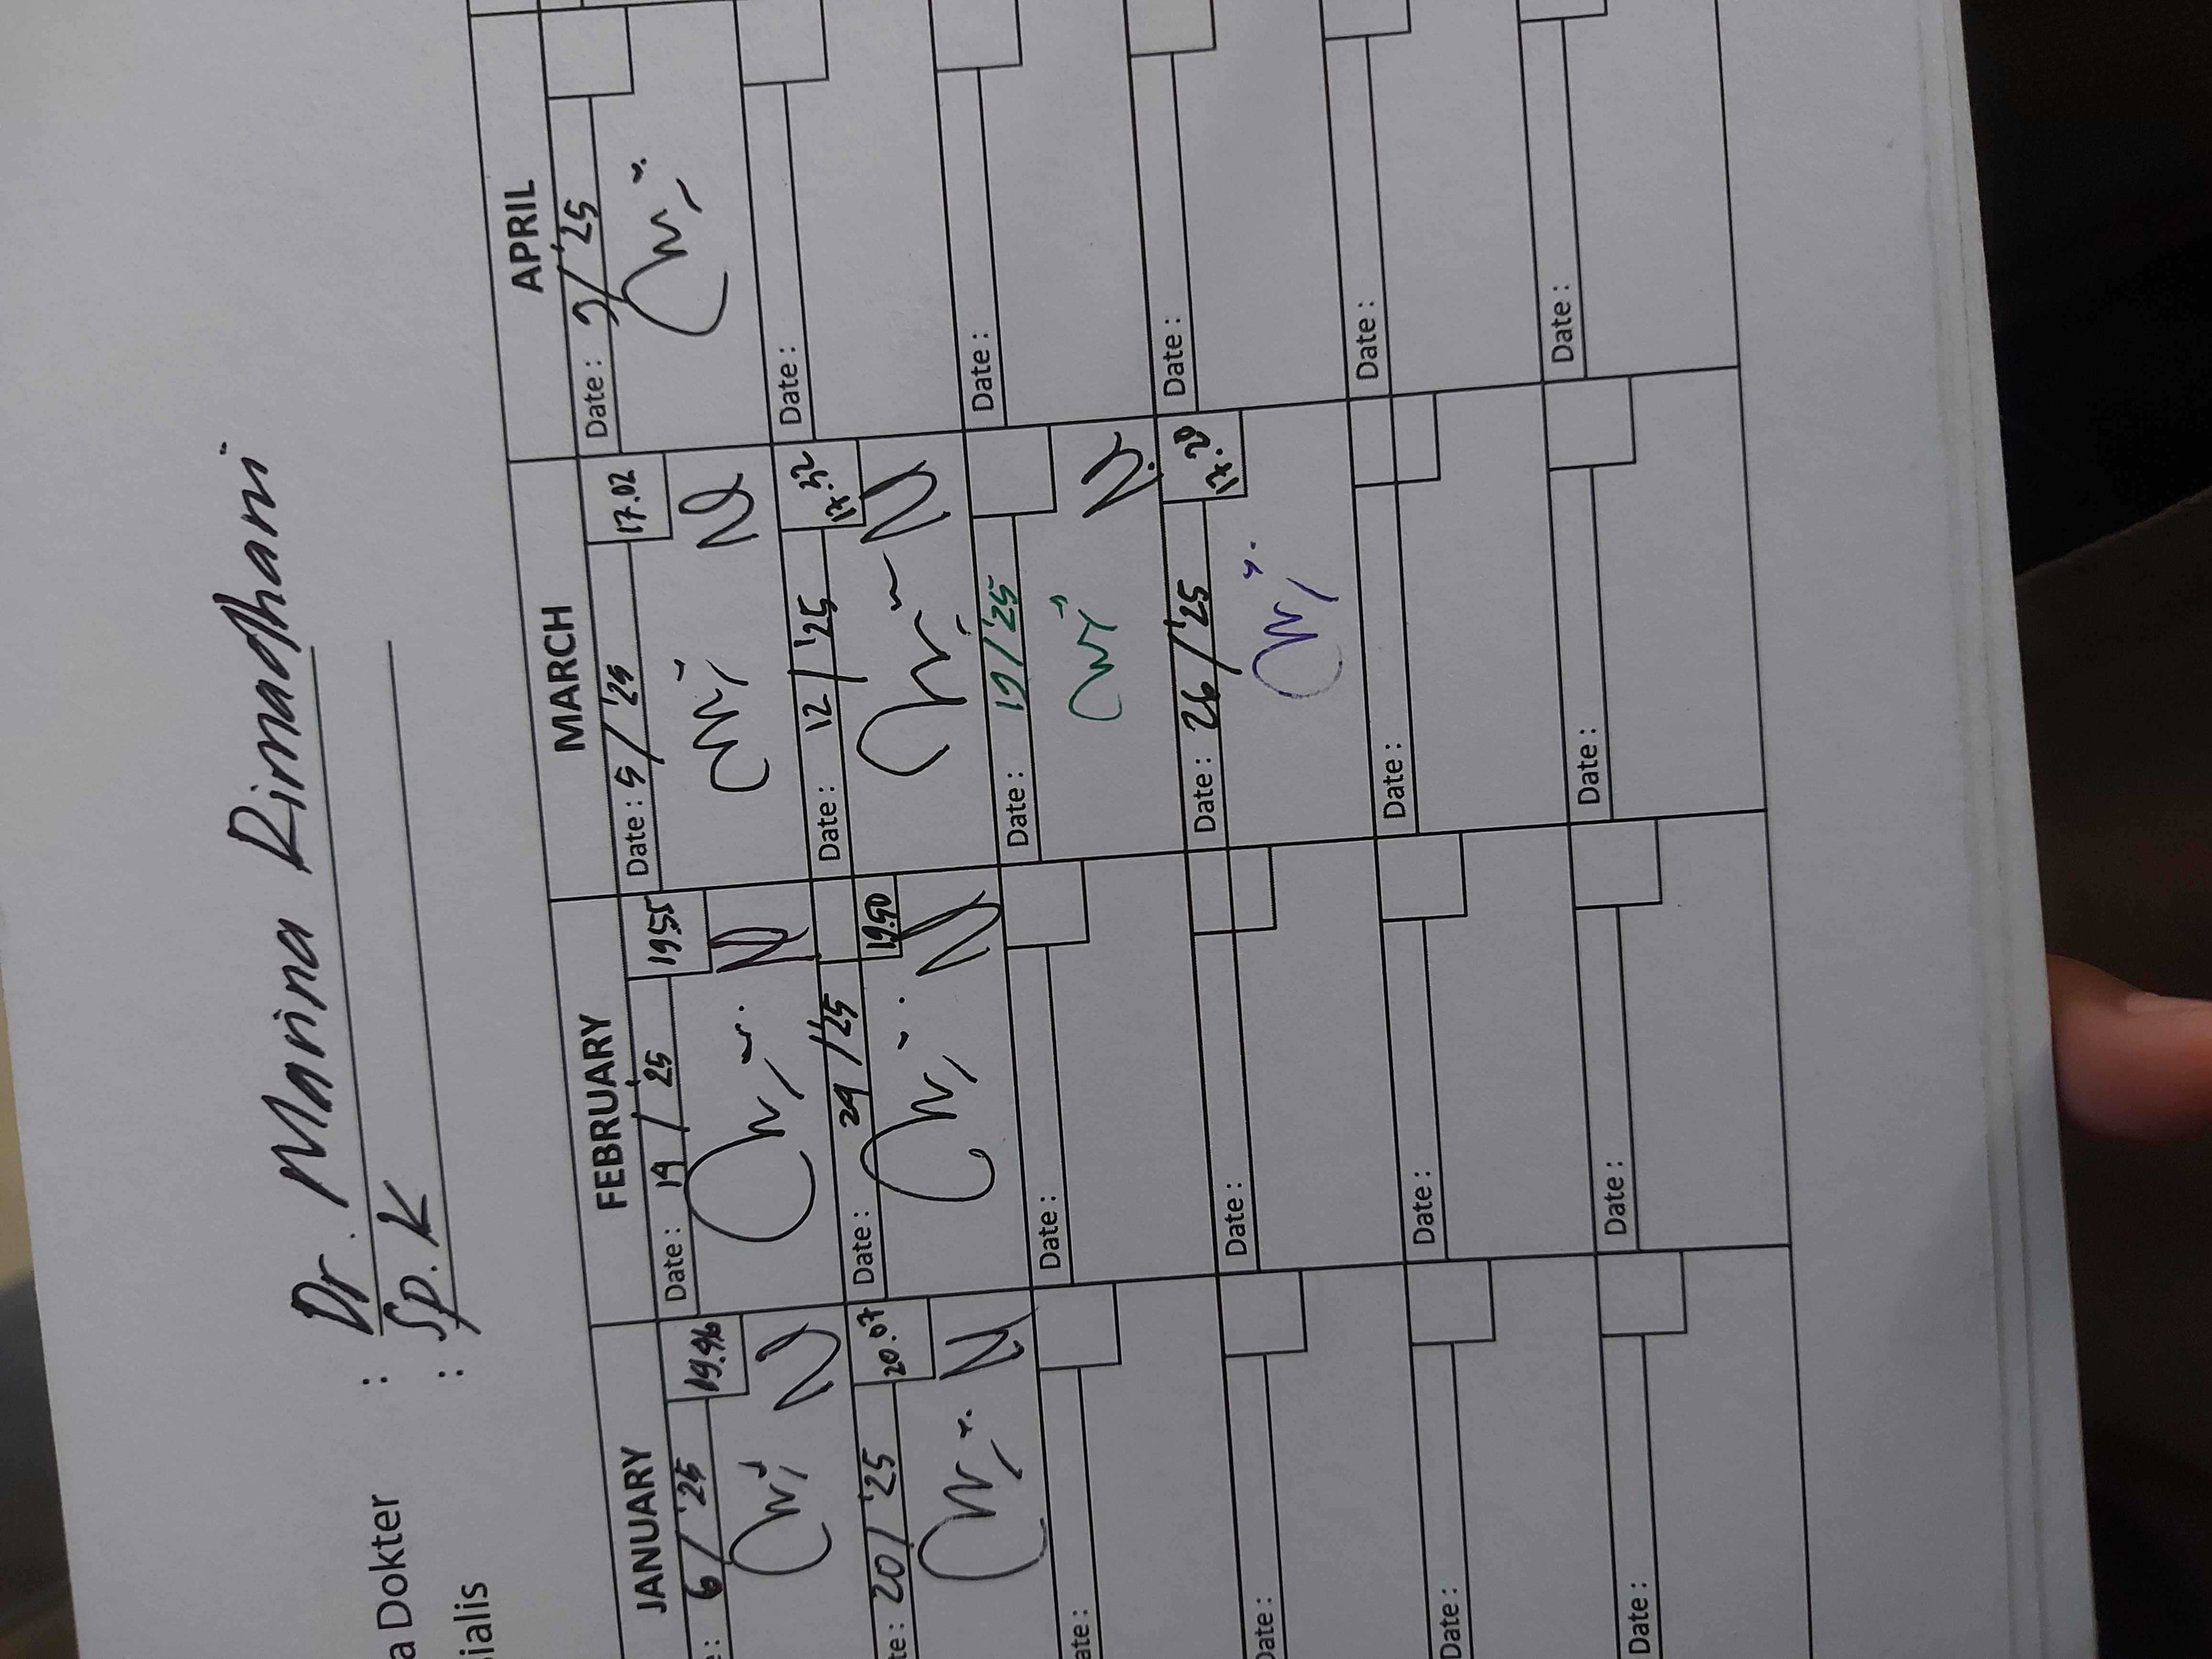 a Dokter : Dr. Marina Rimadhani
ialis : Sp. K
JANUARY FEBRUARY MARCH APRIL
: 6 / '25 19.46 Date : 14 / '25 19.55 Date : 5 / '25 17.02 Date : 2 / '25
te : 20 / '25 20.07 Date : 24 / '25 19.50 Date : 12 / '25 17.32 Date :
ate : Date : Date : 19 / '25 Date :
Date : Date : Date : 26 / '25 17.20 Date :
Date : Date : Date : Date :
Date : Date : Date : Date :